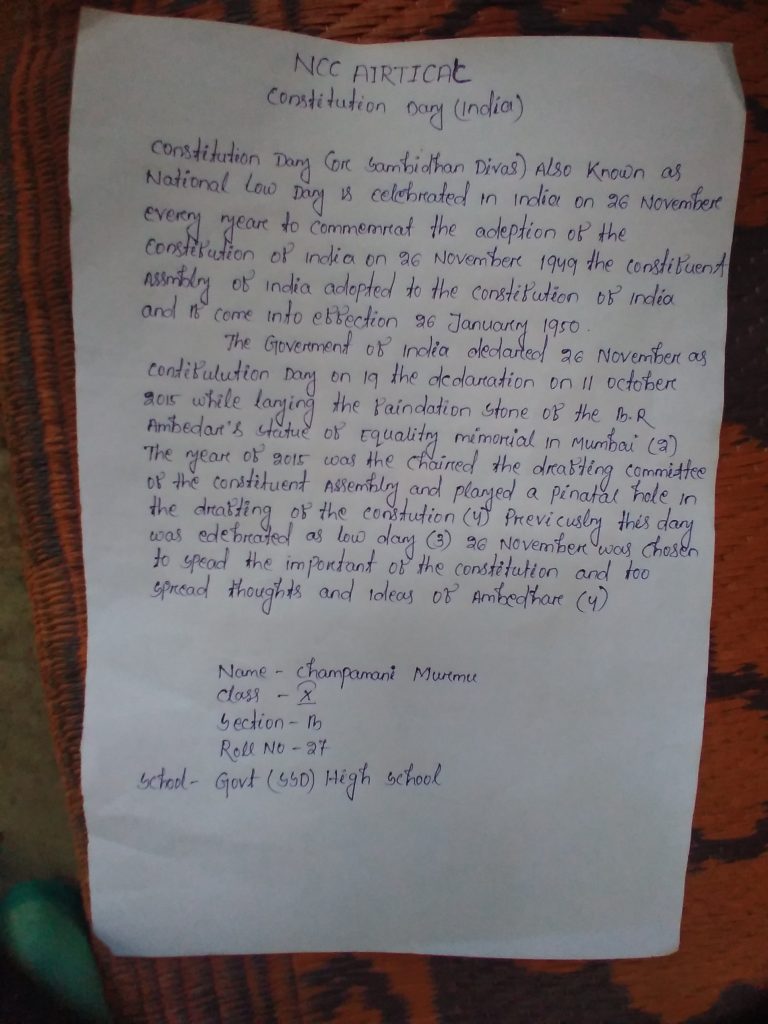 NCC AIRTICAL
Constitution Day (India)
Constitution Day (or Sambidhan Divas) Also Known as
National Low Day is celebrated in India on 26 November
every year to commemrat the adeption of the
Constitution of India on 26 November 1949 the constituent
Assmbly of India adopted to the constitution of India
and it come into effection 26 January 1950.
The Goverment of India declared 26 November as
contitulution Day on 19 the dcdaration on 11 october
2015 while laying the Faindation stone of the B.R
Ambedar's statue of Equality mimorial in Mumbai (2)
The year of 2015 was the chaired the drafting committee
of the constituent Assembly and played a pinatal hole in
the drafting of the constution (4) Previcusly this day
was edebrated as low day (3) 26 November was chosen
to spead the important of the constitution and too
spread thoughts and ideas of Ambedhare (4)
Name - Champamani Murmu
Class - X
Section - B
Roll No - 27
School - Govt (SSD) High School